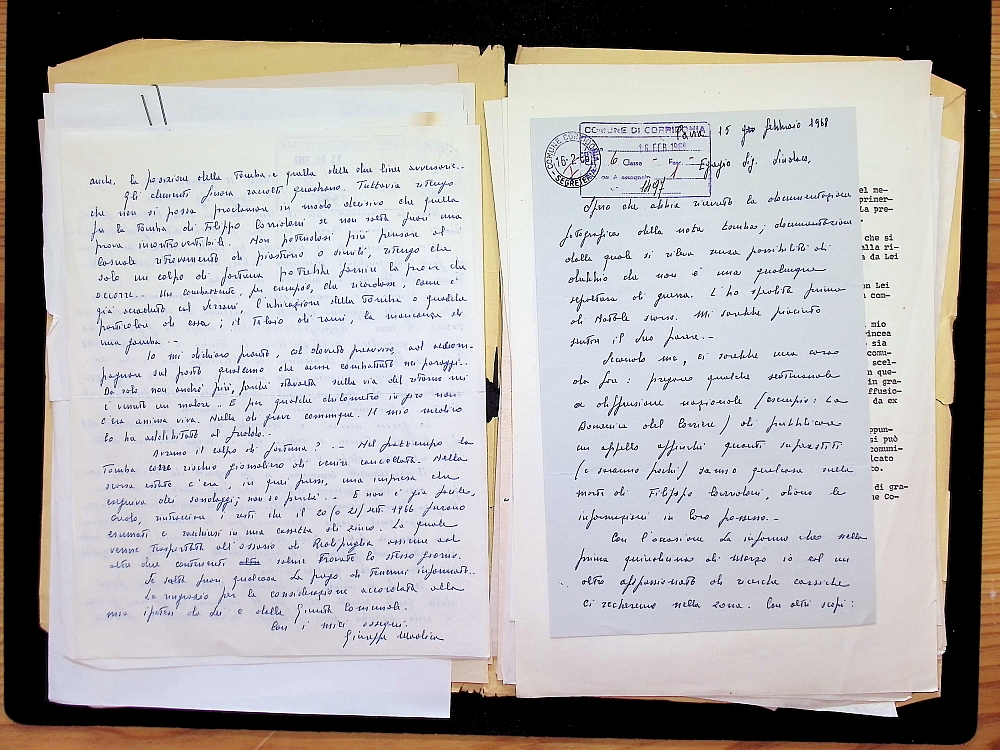 anche, la posizione della Tomba e quella delle due linee avversarie..
Gli elementi finora raccolti quadrano. Tuttavia ritengo
che non si possa proclamare in modo decisivo che quella
fu la Tomba di Filippo Corridoni se non salta fuori una
prova incontrovertibile. Non potendosi più pensare al
casuale ritrovamento di piastrino o simili, ritengo che
solo un colpo di fortuna potrebbe fornire la prova che
occorre.. Un combattente, per esempio, che ricordasse, come è
già accaduto col Serrani, l'ubicazione della Tomba o qualche
particolare di essa; il telaio di rami, la mancanza di
una gamba...
Io mi dichiaro pronto, col dovuto preavviso ad accom-
pagnare sul posto qualcuno che avesse combattuto nei paraggi..
Da solo non andrò più, perché stavolta sulla via del ritorno mi
è venuto un malore. E per qualche chilometro in giro non
c'era anima viva. Nulla di grave comunque. Il mio medico
lo ha addebitato al freddo..
Avremo il colpo di fortuna? .- Nel frattempo la
Tomba corre rischio giornaliero di venire cancellata. Nella
scorsa estate c'era, in quei pressi, una impresa che
eseguiva dei sondaggi; non so perché... E non è già facile,
credo, rintracciare i resti che il 20/o 21/sett 1966 furono
esumati e racchiusi in una cassetta di zinco. La quale
venne trasportata all'ossario di Redipuglia assieme ad
altre due contenenti salme trovate lo stesso giorno.
Se salta fuori qualcosa La prego di tenermi informato..
La ringrazio per la considerazione accordata alla
mia ipotesi da Lei e dalla Giunta Comunale.
Con i miei ossequi.
Giuseppe
COMUNE DI CORRIDONIA
16 FEB 1968
6 Classe - Fasc. 1
N. 1497
COMUNE CORRIDONIA
16-2-68
SEGRETERIA
15 febbraio 1968
Egregio Sig. Sindaco,
Spero che abbia ricevuto la documentazione
fotografica della nota tomba; documentazione
dalla quale si rileva senza possibilità di
dubbio che non è una qualunque
sepoltura di guerra. L'ho spedita prima
di Natale scorso. Mi sarebbe piaciuto
sentire il Suo parere.-
Secondo me, ci sarebbe una cosa
da fare: pregare qualche settimanale
a diffusione nazionale (esempio: La
Domenica del Corriere) di pubblicare
un appello affinché quanti superstiti
(e saranno pochi) sanno qualcosa sulla
morte di Filippo Corridoni, diano le
informazioni in loro possesso.-
Con l'occasione La informo che nella
prima quindicina di Marzo io ed un
altro appassionato di ricerche carsiche
ci recheremo nella zona. Con altri scopi:
el me-
primer-
la pre-
che si
alla ri-
a da Lei
on Lei
com-
mio
incea
sia
comu-
scel-
n que-
in gra-
ffusio-
da ex
ppun-
si può
comuni-
lcato
to.
di gra-
ne Co-